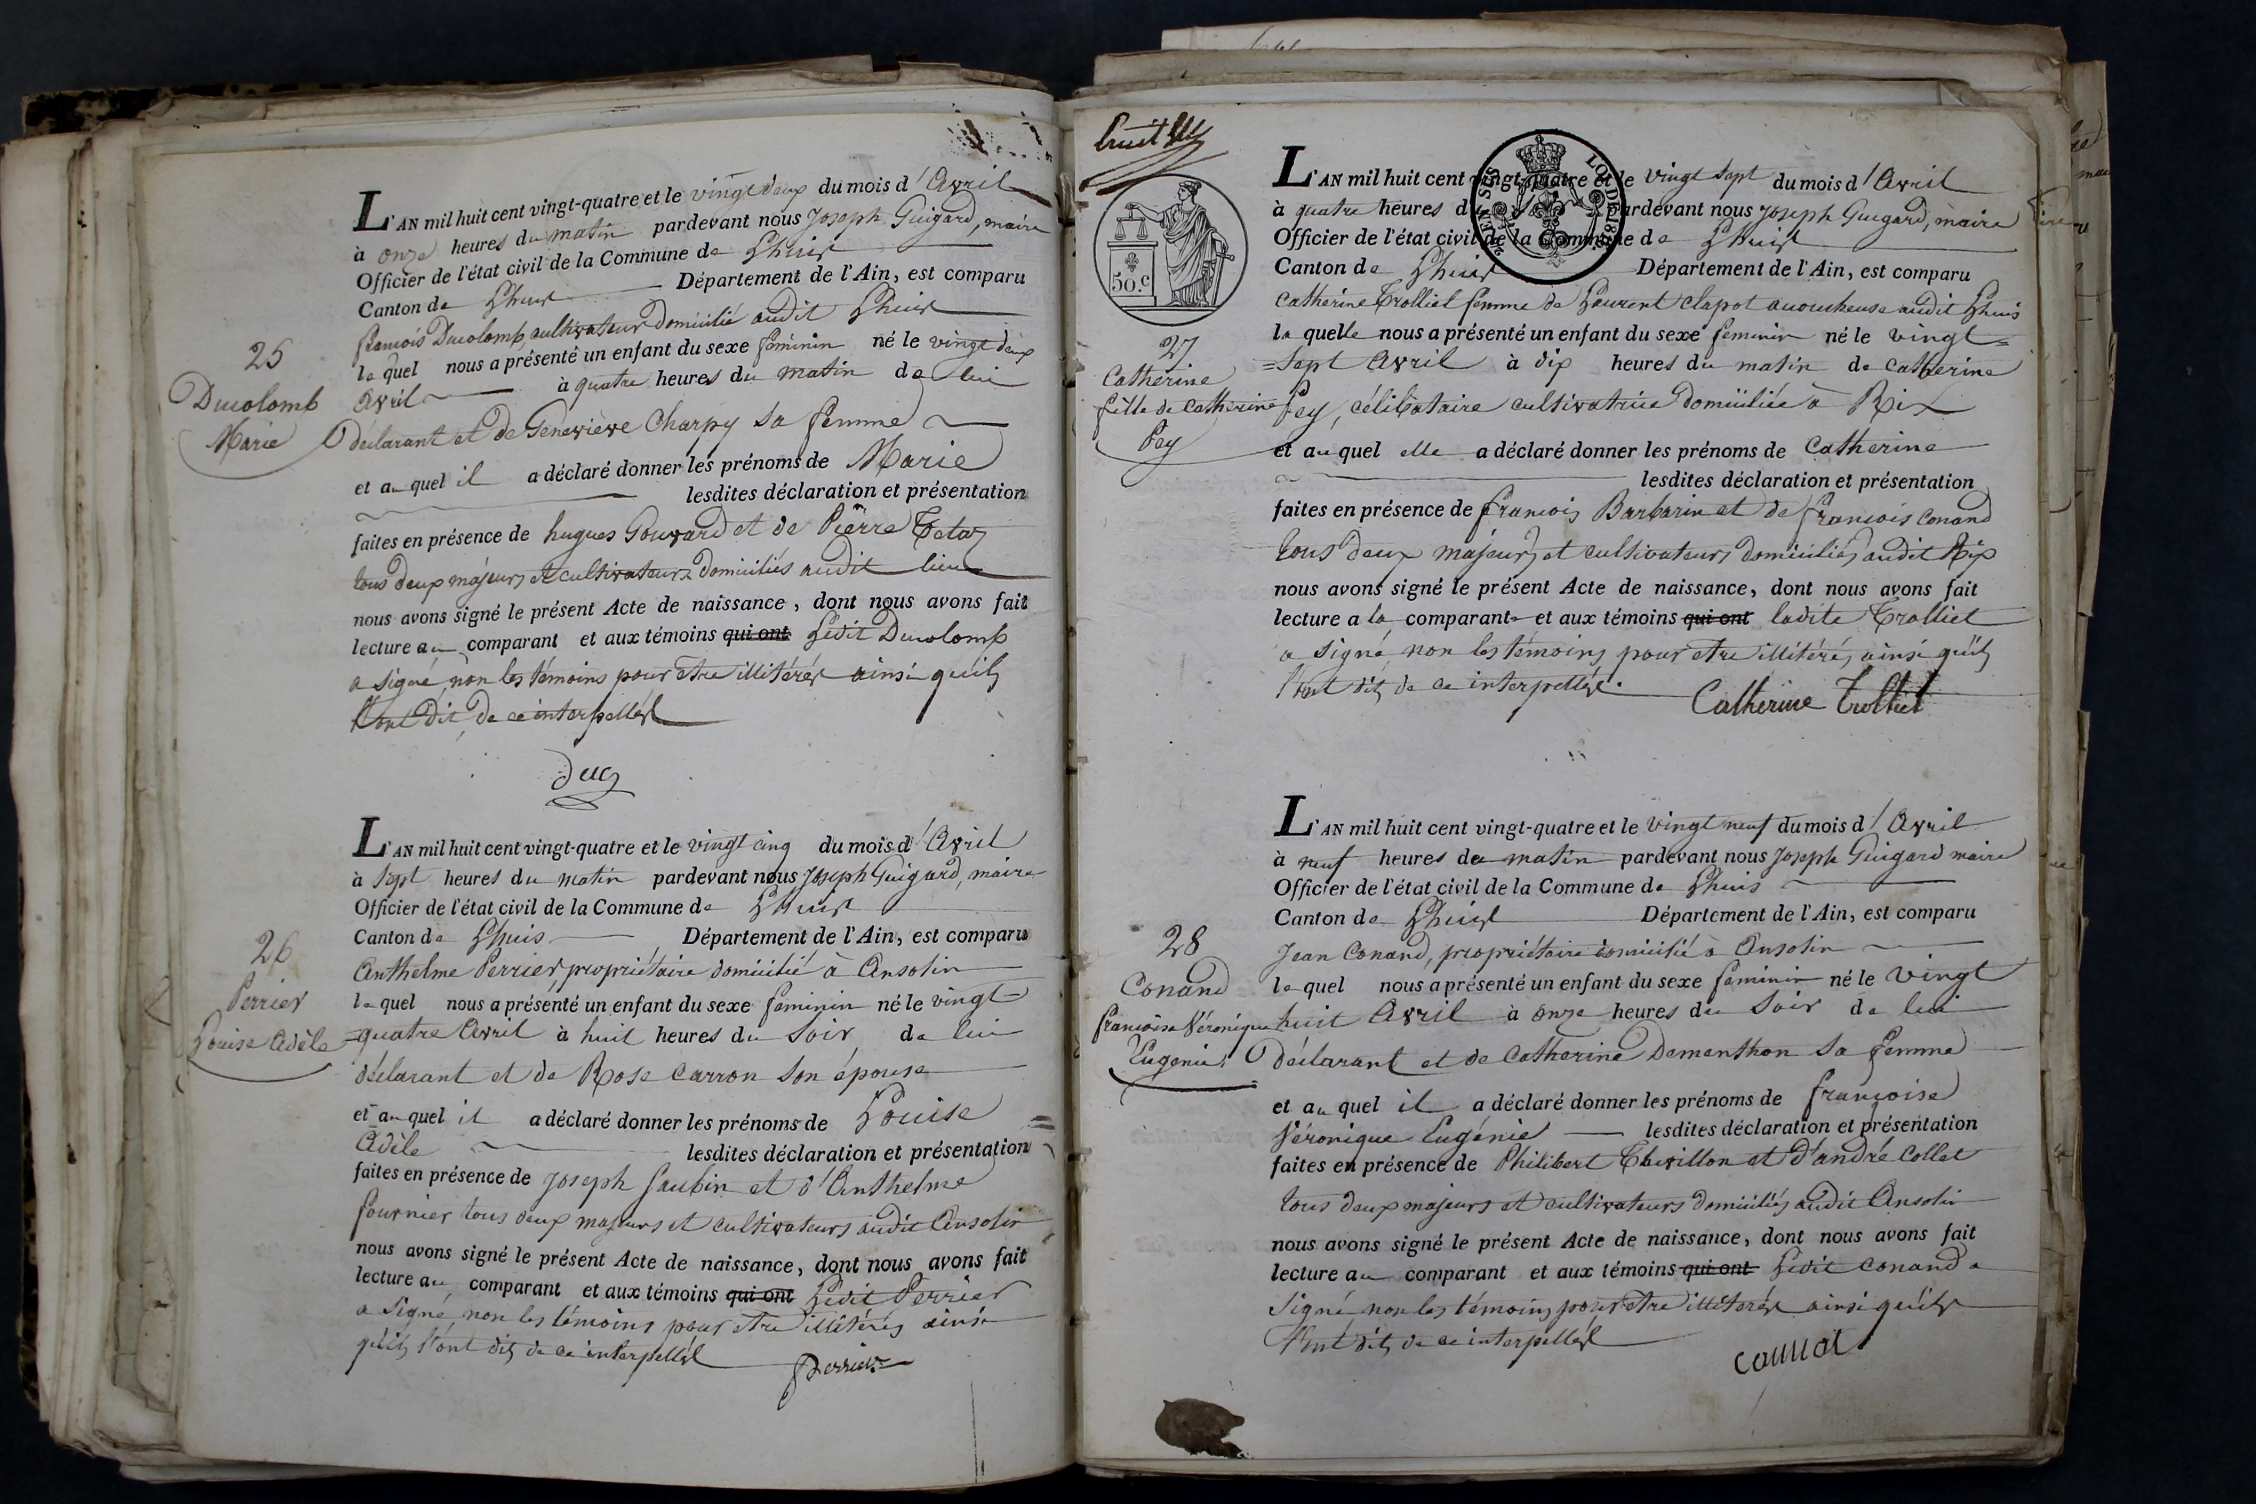 25
Ducolomb
Marie
L'AN mil huit cent vingt-quatre et le vingt deux du mois d'Avril
à onze heures du matin pardevant nous Joseph Guigard, maire
Officier de l'état civil de la Commune de Lhuis
Canton de Lhuis Département de l'Ain, est comparu
françois Ducolomb, cultivateur domicilié audit Lhuis
le quel nous a présenté un enfant du sexe féminin né le vingt deux
Avril à quatre heures du matin de lui
déclarant et de Geneviève Charpy sa femme
et au quel il a déclaré donner les prénoms de Marie
lesdites déclaration et présentation
faites en présence de hugues Gouvard et de Pierre Tetaz
tous deux majeurs et cultivateurs domiciliés audit lieu
nous avons signé le présent Acte de naissance, dont nous avons fait
lecture au comparant et aux témoins qui ont Ledit Ducolomb
a signé, non les témoins pour etre illitérés ainsi qu'ils
l'ont dit, de ce interpellés
duc
26
Perrier
Louise Adèle
L'AN mil huit cent vingt-quatre et le vingt cinq du mois d'Avril
à sept heures du matin pardevant nous Joseph Guigard, maire
Officier de l'état civil de la Commune de Lhuis
Canton de Lhuis Département de l'Ain, est comparu
Anthelme Perrier, propriétaire domicilié à Ansolin
le quel nous a présenté un enfant du sexe féminin né le vingt
=quatre Avril à huit heures du soir de lui
déclarant et de Rose Carron son épouse
et au quel il a déclaré donner les prénoms de Louise
Adèle lesdites déclaration et présentation
faites en présence de Joseph Gaubin et d'Anthelme
fournier tous deux majeurs et cultivateurs audit Ansolin
nous avons signé le présent Acte de naissance, dont nous avons fait
lecture au comparant et aux témoins qui ont Ledit Perrier
a signé, non les témoins pour etre illitérés ainsi
qu'ils l'ont dit, de ce interpellés
Perrier
huit
50.c
27
Catherine
fille de Catherine
Pey
L'AN mil huit cent vingt-quatre et le vingt sept du mois d'Avril
à quatre heures du pardevant nous Joseph Guigard, maire
Officier de l'état civil de la Commune de Lhuis
Canton de Lhuis Département de l'Ain, est comparu
Catherine Trolliet femme de Laurent Clapot accoucheuse audit Lhuis
la quelle nous a présenté un enfant du sexe féminin né le vingt=
=sept Avril à dix heures du matin de Catherine
Pey, célibataire cultivatrice domiciliée à Rix
et au quel elle a déclaré donner les prénoms de Catherine
lesdites déclaration et présentation
faites en présence de françois Barbarin et de françois Conand
tous deux majeurs et cultivateurs domiciliés audit Rix
nous avons signé le présent Acte de naissance, dont nous avons fait
lecture a la comparante et aux témoins qui ont ladite Trolliet
a signé, non les témoins pour etre illitérés ainsi qu'ils
l'ont dit, de ce interpellés.
Catherine Trolliet
28
Conand
françoise Véronique
Eugenie
L'AN mil huit cent vingt-quatre et le vingt neuf du mois d'Avril
à neuf heures du matin pardevant nous Joseph Guigard maire
Officier de l'état civil de la Commune de Lhuis
Canton de Lhuis Département de l'Ain, est comparu
Jean Conand, propriétaire domicilié à Ansolin
le quel nous a présenté un enfant du sexe féminin né le vingt
huit Avril à onze heures du soir de lui
déclarant et de Catherine Dementhon sa femme
et au quel il a déclaré donner les prénoms de françoise
Véronique Eugénie lesdites déclaration et présentation
faites en présence de Philibert Thevillon et d'andré Collet
tous deux majeurs et cultivateurs domiciliés audit Ansolin
nous avons signé le présent Acte de naissance, dont nous avons fait
lecture au comparant et aux témoins qui ont Ledit Conand a
signé, non les témoins pour etre illitérés ainsi qu'ils
l'ont dit, de ce interpellés